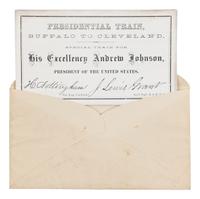 PRESIDENTIAL TRAIN,
BUFFALO TO CLEVELAND.
SPECIAL TRAIN FOR
His Excellency Andrew Johnson,
PRESIDENT OF THE UNITED STATES.
H. Nottingham J. Lewis Grant